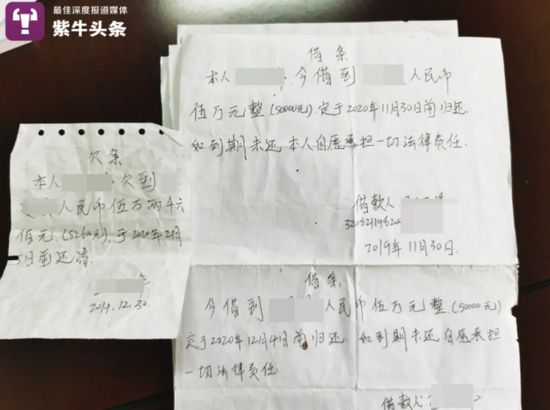 最佳深度报道媒体
紫牛头条
借条
本人 今借到 人民币
伍万元整(50000元).定于2020年11月30日前归还
如到期未还本人自愿承担一切法律责任.
借款人
2019年11月30日.
欠条
本人 欠到
人民币伍万两千六
佰元.(52600元).于2020年2月
日前还清
2019.12.30
借条
今借到 人民币伍万元整.(50000元)
定于2020年12月4日前归还 如到期未还自愿承担
一切法律责任.
借款人: